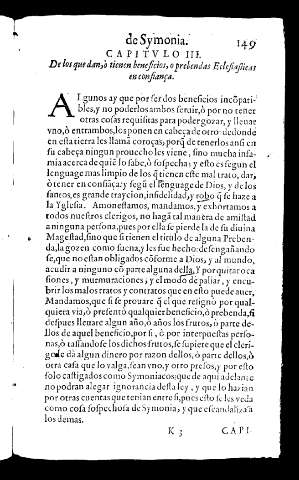 de Symonia. 149
CAPITVLO III.
De los que dan, ò tienen beneficios, o prebendas Eclesiasticas
en confiança.
Algunos ay que por ser dos beneficios incõpati-
bles, y no poderlos ambos seruir, ò por no tener
otras cosas requisitas para poder gozar, y lleuar
vno, ò entrambos, los ponen en cabeça de otro: de donde
en esta tierra les llamã coroças; porq̃ de tenerlos ansi en
su cabeça ningun prouecho les viene, sino mucha infa-
mia acerca de quiẽ lo sabe, ò sospecha: y esto es segun el
lenguage mas limpio de los q̃ tienen este mal trato, dar,
ò tener en confiãça: y segũ el lenguage de Dios, y de los
santos, es grande trayciõ, infidelidad, y robo q̃ se haze a
la Yglesia. Amonestamos, mandamos, y exhortamos a
todos nuestros clerigos, no hagã tal manera de amistad
a ninguna persona, pues por ella se pierde la de su diuina
Magestad, sino que si tienen el titulo de alguna Preben-
da, la gozen como suena, y les fue hecho: desengañando
se, que no estan obligados cõforme a Dios, y al mundo,
acudir a ninguno cõ parte alguna della. Y por quitar oca
siones, y murmuraciones, y el modo de paliar, y encu-
brir los malos tratos y contratos que en esto puede auer,
Mandamos, que si se prouare q̃ el que resignò por qual-
quiera via, ò presentò qualquier beneficio, ò prebenda, si
despues lleuare algun año, ò años los frutos, ò parte de-
llos de aquel beneficio, por si, ò por interpuestas perso-
nas, ò casandose los dichos frutos, se supiere que el cleri-
go le dà algun dinero por razon dellos, ò parte dellos, ò
otra cosa que lo valga, sean vno, y otro presos, y por esto
solo castigados como Symoniacos: que de aqui adelante
no podran alegar ignorancia desta ley, y que lo hazian
por otras cuentas que tenian entre si, pues esto se les veda
como cosa sospechosa de Symonia, y que escandaliza a
los demas.
K 3 CAPI-